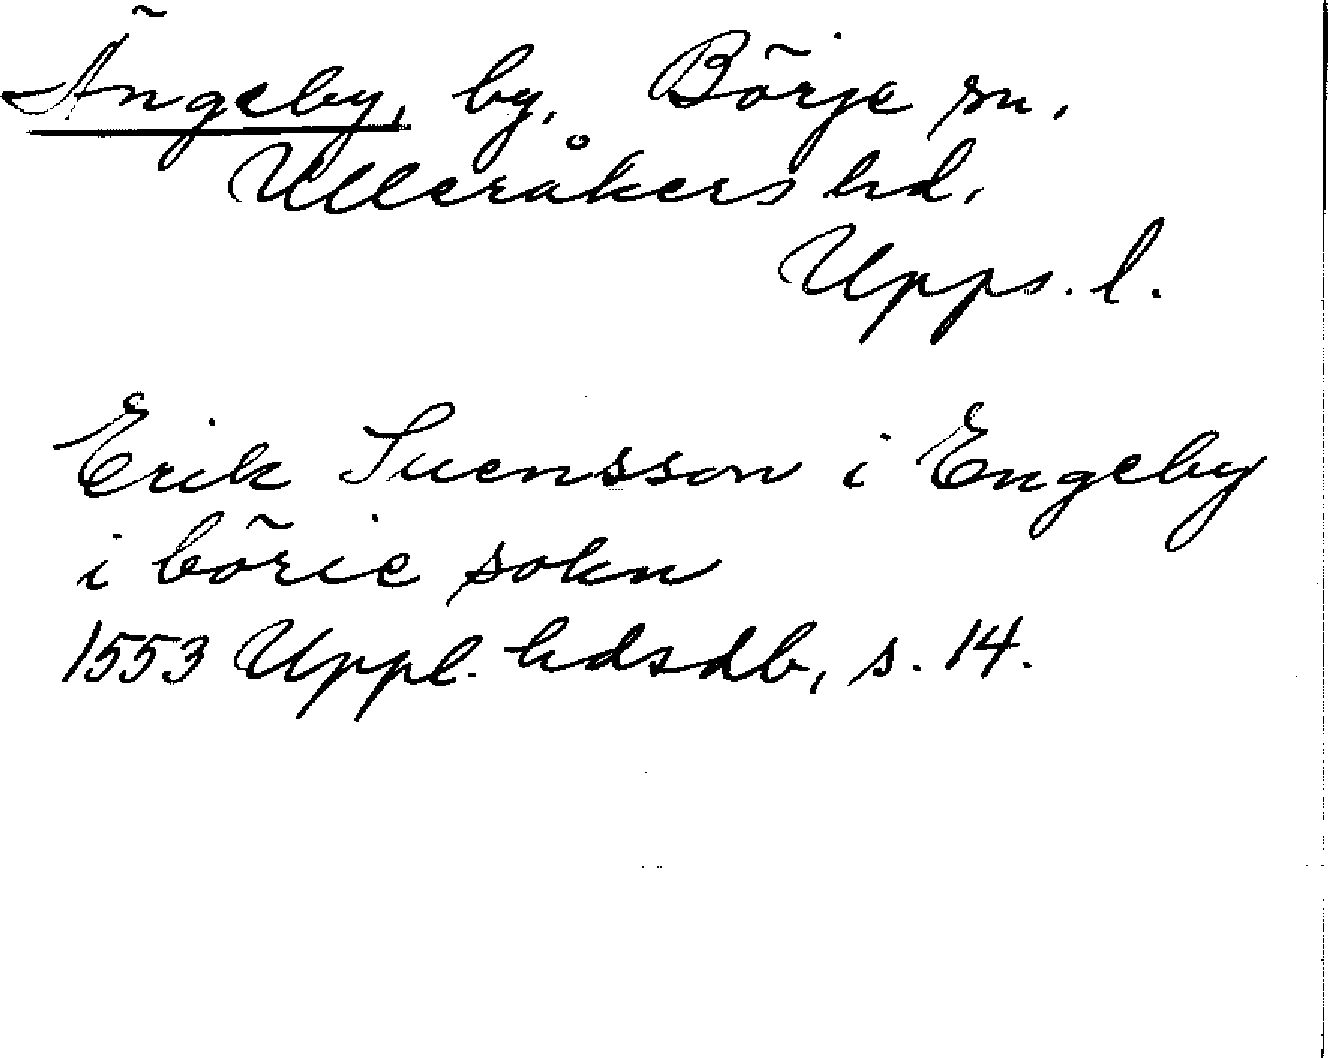 Ängeby, by, Börje sn.
Ulleråkers hd.
Upps. l.
Erik Suensson i Engeby
i börie sokn
1553 Uppl. hdsdb, s. 14.